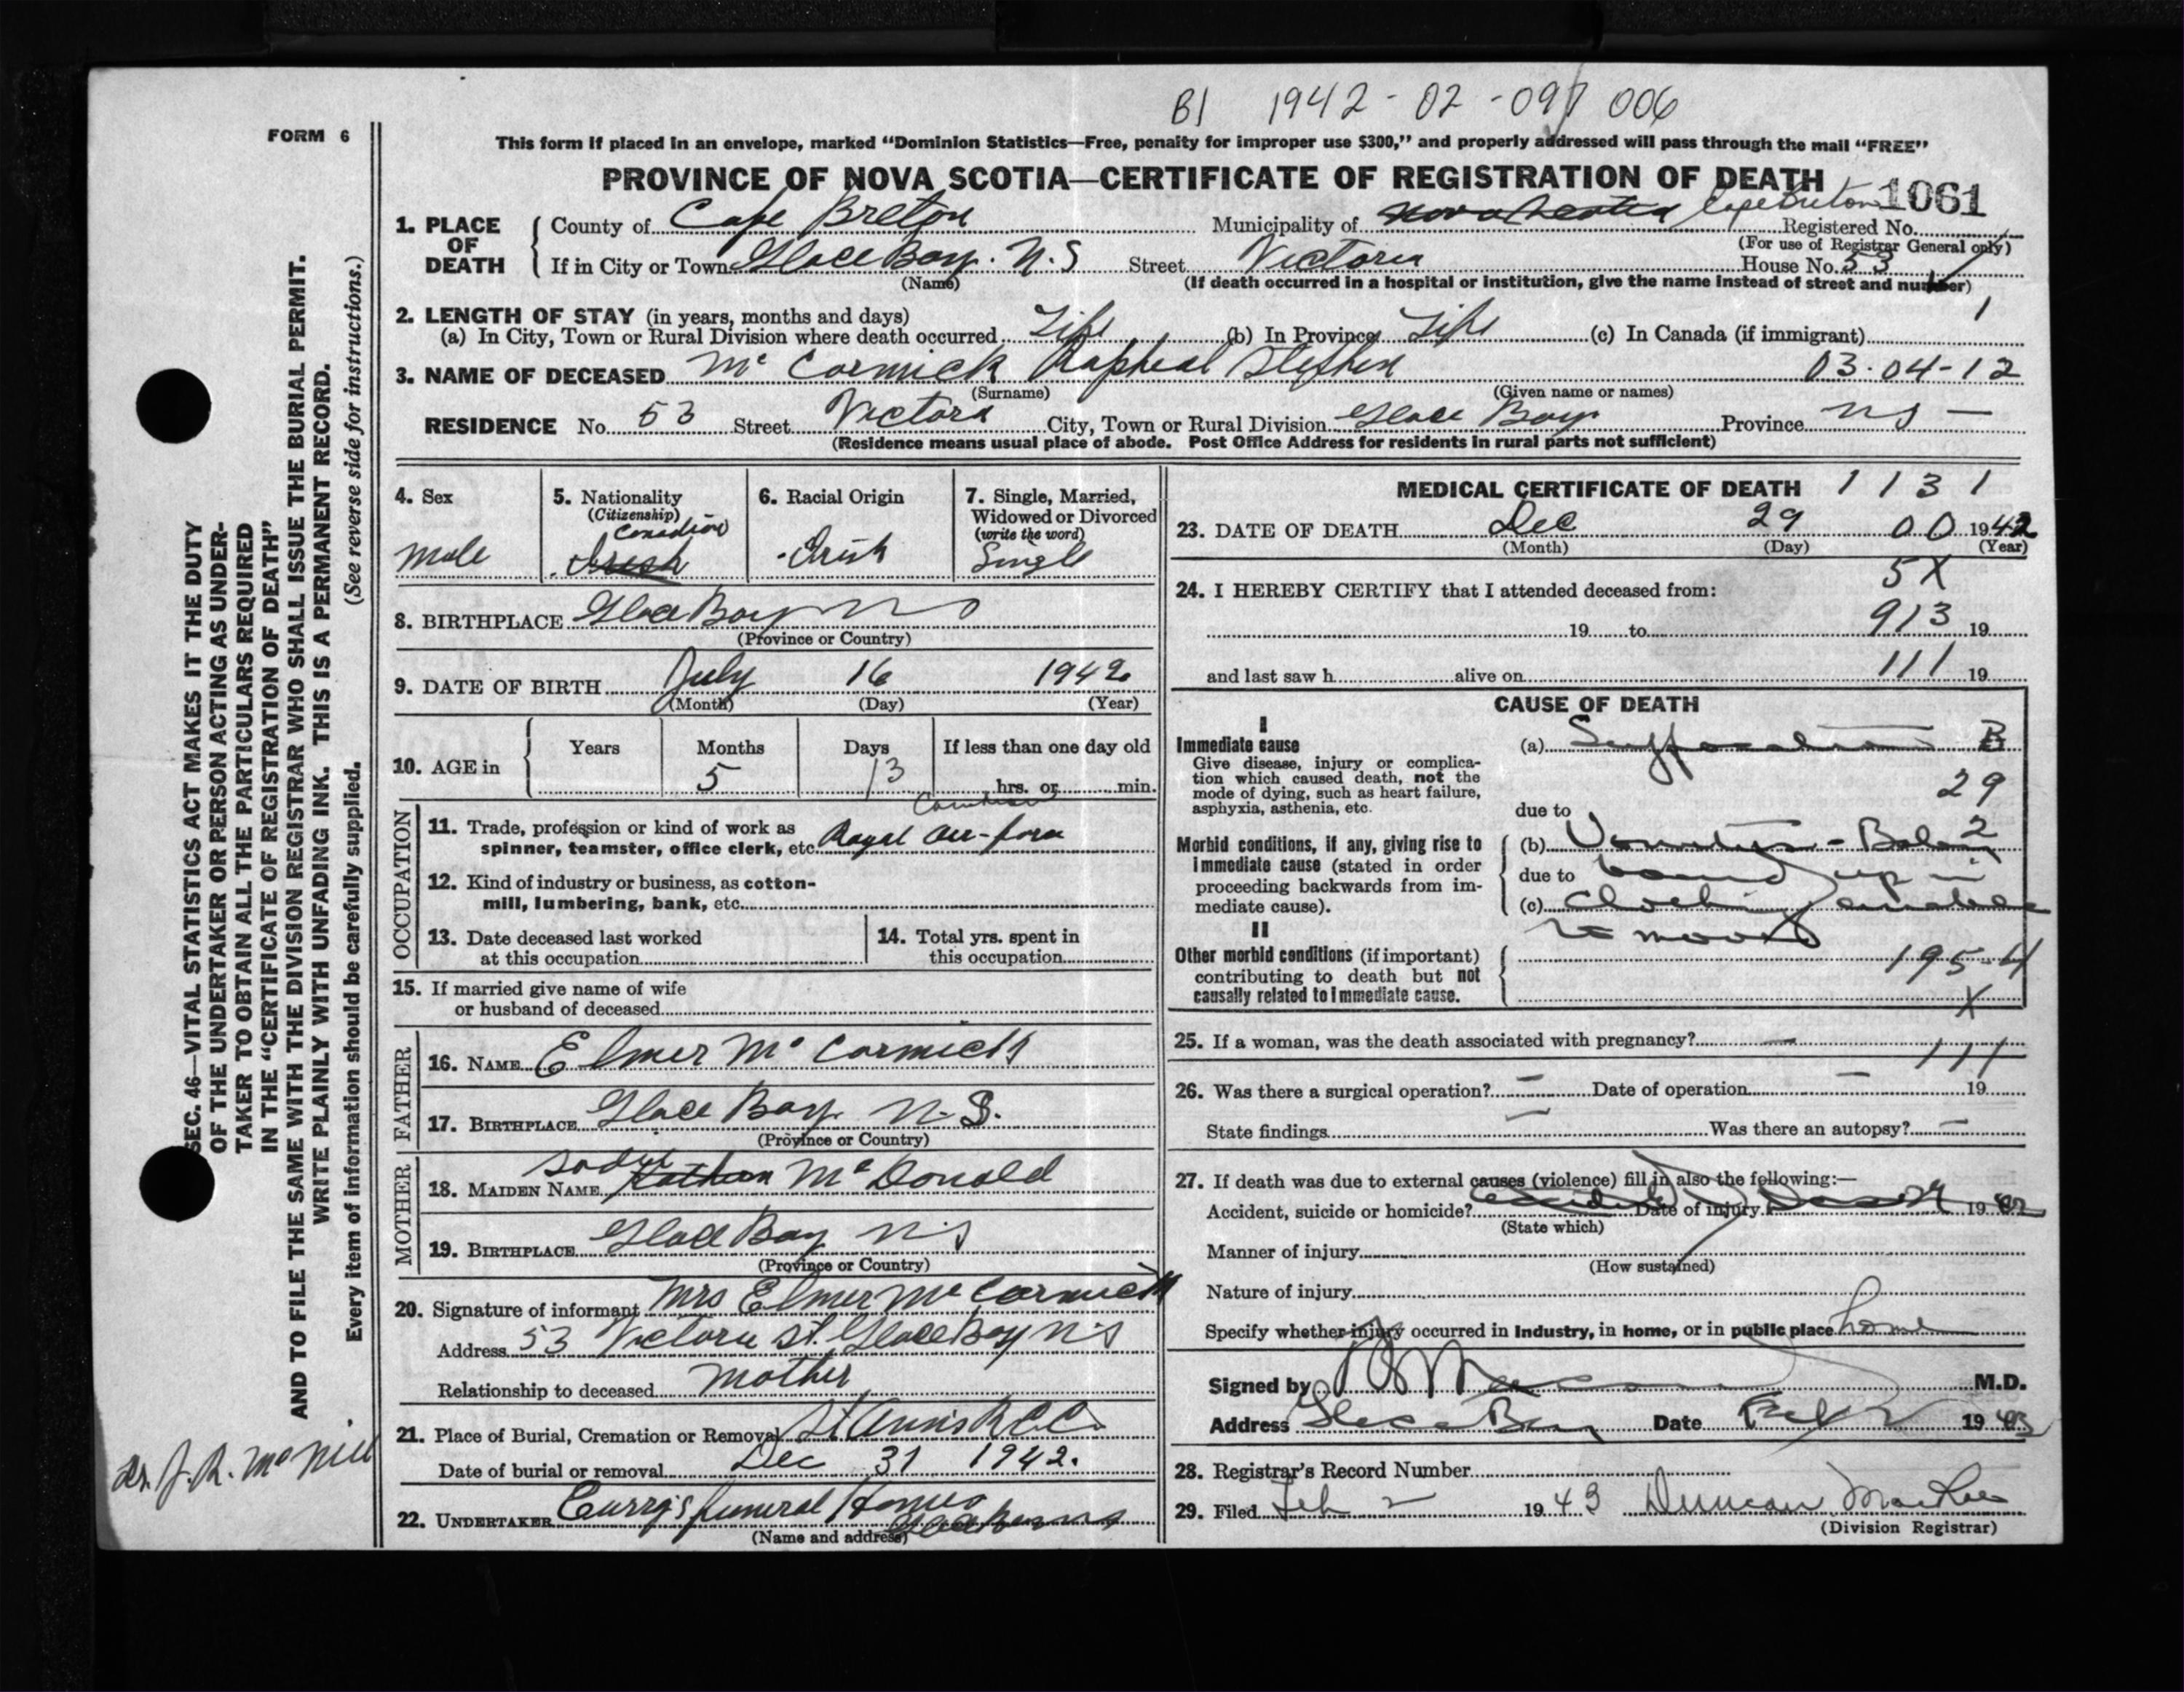 B1 1942-02-097 006
FORM 6
This form if placed in an envelope, marked “Dominion Statistics—Free, penalty for improper use $300,” and properly addressed will pass through the mail “FREE”
PROVINCE OF NOVA SCOTIA—CERTIFICATE OF REGISTRATION OF DEATH 1061
1. PLACE OF DEATH
County of Cape Breton Municipality of Nova Scotia Cape Breton Registered No.
(For use of Registrar General only)
If in City or Town Glace Bay. N.S Street Victoria House No. 53
(Name) (If death occurred in a hospital or institution, give the name instead of street and number)
2. LENGTH OF STAY (in years, months and days) 1
(a) In City, Town or Rural Division where death occurred Life (b) In Province Life (c) In Canada (if immigrant)
3. NAME OF DECEASED Mc Cormick Rapheal Stephen 03-04-12
(Surname) (Given name or names)
RESIDENCE No. 53 Street Victora City, Town or Rural Division Glace Bay Province NS —
(Residence means usual place of abode. Post Office Address for residents in rural parts not sufficient)
4. Sex Male
5. Nationality (Citizenship) Canadian Irish
6. Racial Origin Irish
7. Single, Married, Widowed or Divorced (write the word) Single
8. BIRTHPLACE Glace Bay NS
(Province or Country)
9. DATE OF BIRTH July 16 1942
(Month) (Day) (Year)
10. AGE in Years Months 5 Days 13 If less than one day old hrs. or min.
OCCUPATION
11. Trade, profession or kind of work as spinner, teamster, office clerk, etc. Royal Air-force
12. Kind of industry or business, as cotton-mill, lumbering, bank, etc.
13. Date deceased last worked at this occupation
14. Total yrs. spent in this occupation
15. If married give name of wife or husband of deceased
FATHER
16. NAME Elmer Mc Cormick
17. BIRTHPLACE Glace Bay N.S.
(Province or Country)
MOTHER
18. MAIDEN NAME Sadie McDonald
19. BIRTHPLACE Glace Bay NS
(Province or Country)
20. Signature of informant Mrs Elmer McCormick
Address 53 Victoria St. Glace Bay NS
Relationship to deceased Mother
21. Place of Burial, Cremation or Removal St Ann's R.C.C.
Date of burial or removal Dec 31 1942.
22. UNDERTAKER Curry's funeral Home
(Name and address) Glace Bay NS
MEDICAL CERTIFICATE OF DEATH 1131
23. DATE OF DEATH Dec 29 00 1942
(Month) (Day) (Year)
5X
24. I HEREBY CERTIFY that I attended deceased from:
19 to 913 19
and last saw h alive on 111 19
CAUSE OF DEATH
I
Immediate cause (a) Suffocation B
Give disease, injury or complication which caused death, not the mode of dying, such as heart failure, asphyxia, asthenia, etc.
29
due to
Morbid conditions, if any, giving rise to immediate cause (stated in order proceeding backwards from immediate cause).
(b) Vomiting - Baby 2
due to bound up in
(c)
to move
II
Other morbid conditions (if important) contributing to death but not causally related to immediate cause.
195-4
X
25. If a woman, was the death associated with pregnancy? —
111
26. Was there a surgical operation? — Date of operation — 19
State findings — Was there an autopsy? —
27. If death was due to external causes (violence) fill in also the following:—
Accident, suicide or homicide? Accident Date of injury Dec 29 1942
(State which)
Manner of injury
(How sustained)
Nature of injury
Specify whether injury occurred in industry, in home, or in public place home
Signed by M.D.
Address Glace Bay Date Feb 2 1943
28. Registrar's Record Number
29. Filed Feb 2 1943 Duncan MacRae
(Division Registrar)
SEC. 46—VITAL STATISTICS ACT MAKES IT THE DUTY
OF THE UNDERTAKER OR PERSON ACTING AS UNDER-
TAKER TO OBTAIN ALL THE PARTICULARS REQUIRED
IN THE “CERTIFICATE OF REGISTRATION OF DEATH”
AND TO FILE THE SAME WITH THE DIVISION REGISTRAR WHO SHALL ISSUE THE BURIAL PERMIT.
WRITE PLAINLY WITH UNFADING INK. THIS IS A PERMANENT RECORD.
Every item of information should be carefully supplied. (See reverse side for instructions.)
Dr. J. R. McNeil